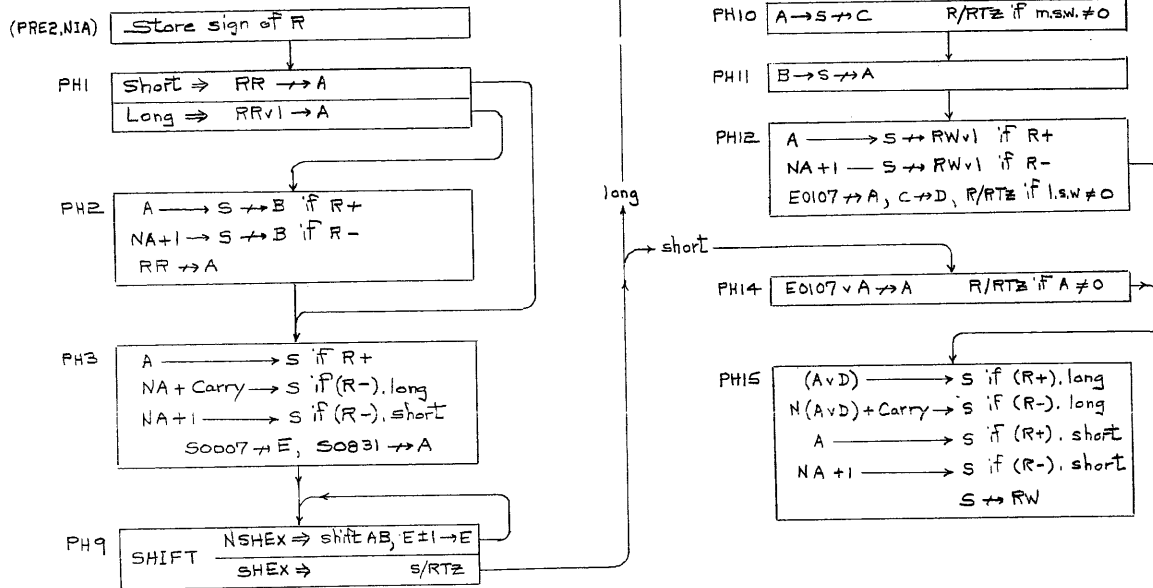 (PRE2,NIA) Store sign of R
PH1 Short ⇒ RR ↛ A
Long ⇒ RRv1 → A
PH2 A → S ↛ B if R+
NA+1 → S ↛ B if R-
RR ↛ A
PH3 A → S if R+
NA + Carry → S if (R-). long
NA+1 → S if (R-). short
S0007 ↛ E, S0831 ↛ A
PH9 SHIFT NSHEX ⇒ shift AB, E±1 → E
SHEX ⇒ S/RTZ
long
short
PH10 A → S ↛ C R/RTZ if m.s.w. ≠ 0
PH11 B → S ↛ A
PH12 A → S ↛ RWv1 if R+
NA+1 — S ↛ RWv1 if R-
E0107 ↛ A, C ↛ D, R/RTZ if l.s.w ≠ 0
PH14 E0107 v A ↛ A R/RTZ if A ≠ 0
PH15 (AvD) → S if (R+). long
N(AvD) + Carry → S if (R-). long
A → S if (R+). short
NA +1 → S if (R-). short
S ↛ RW